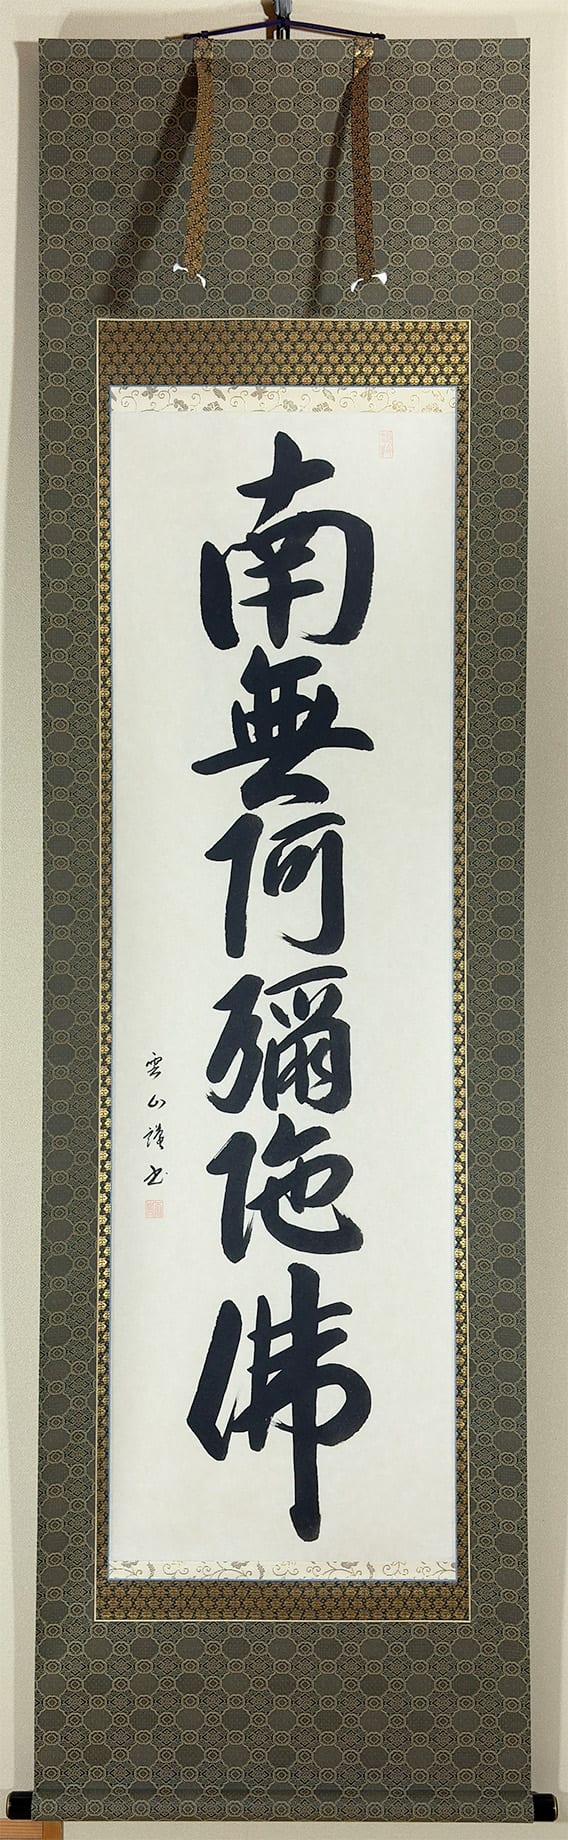 南無阿彌陀佛
雲山謹書